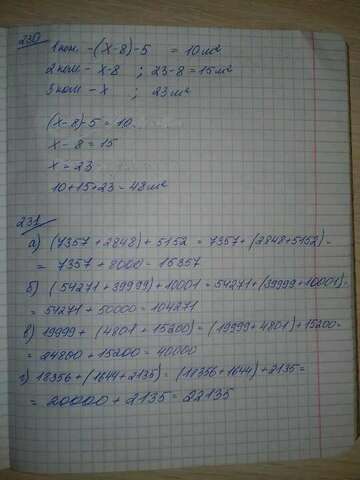 230
1 ком. -(х-8)-5 = 10 м²
2 ком - х-8 ; 23-8 = 15 м²
3 ком - х ; 23 м²
(х-8)-5 = 10
х-8 = 15
х = 23
10+15+23 = 48 м²
231
а) (7357 + 2848) + 5152 = 7357 + (2848+5152) =
= 7357 + 8000 = 15357
б) (54271 + 39999) + 10001 = 54271 + (39999 + 10001) =
= 54271 + 50000 = 104271
в) 19999 + (4801 + 15200) = (19999 + 4801) + 15200 =
= 24800 + 15200 = 40000
г) 18356 + (1644 + 2135) = (18356 + 1644) + 2135 =
= 20000 + 2135 = 22135